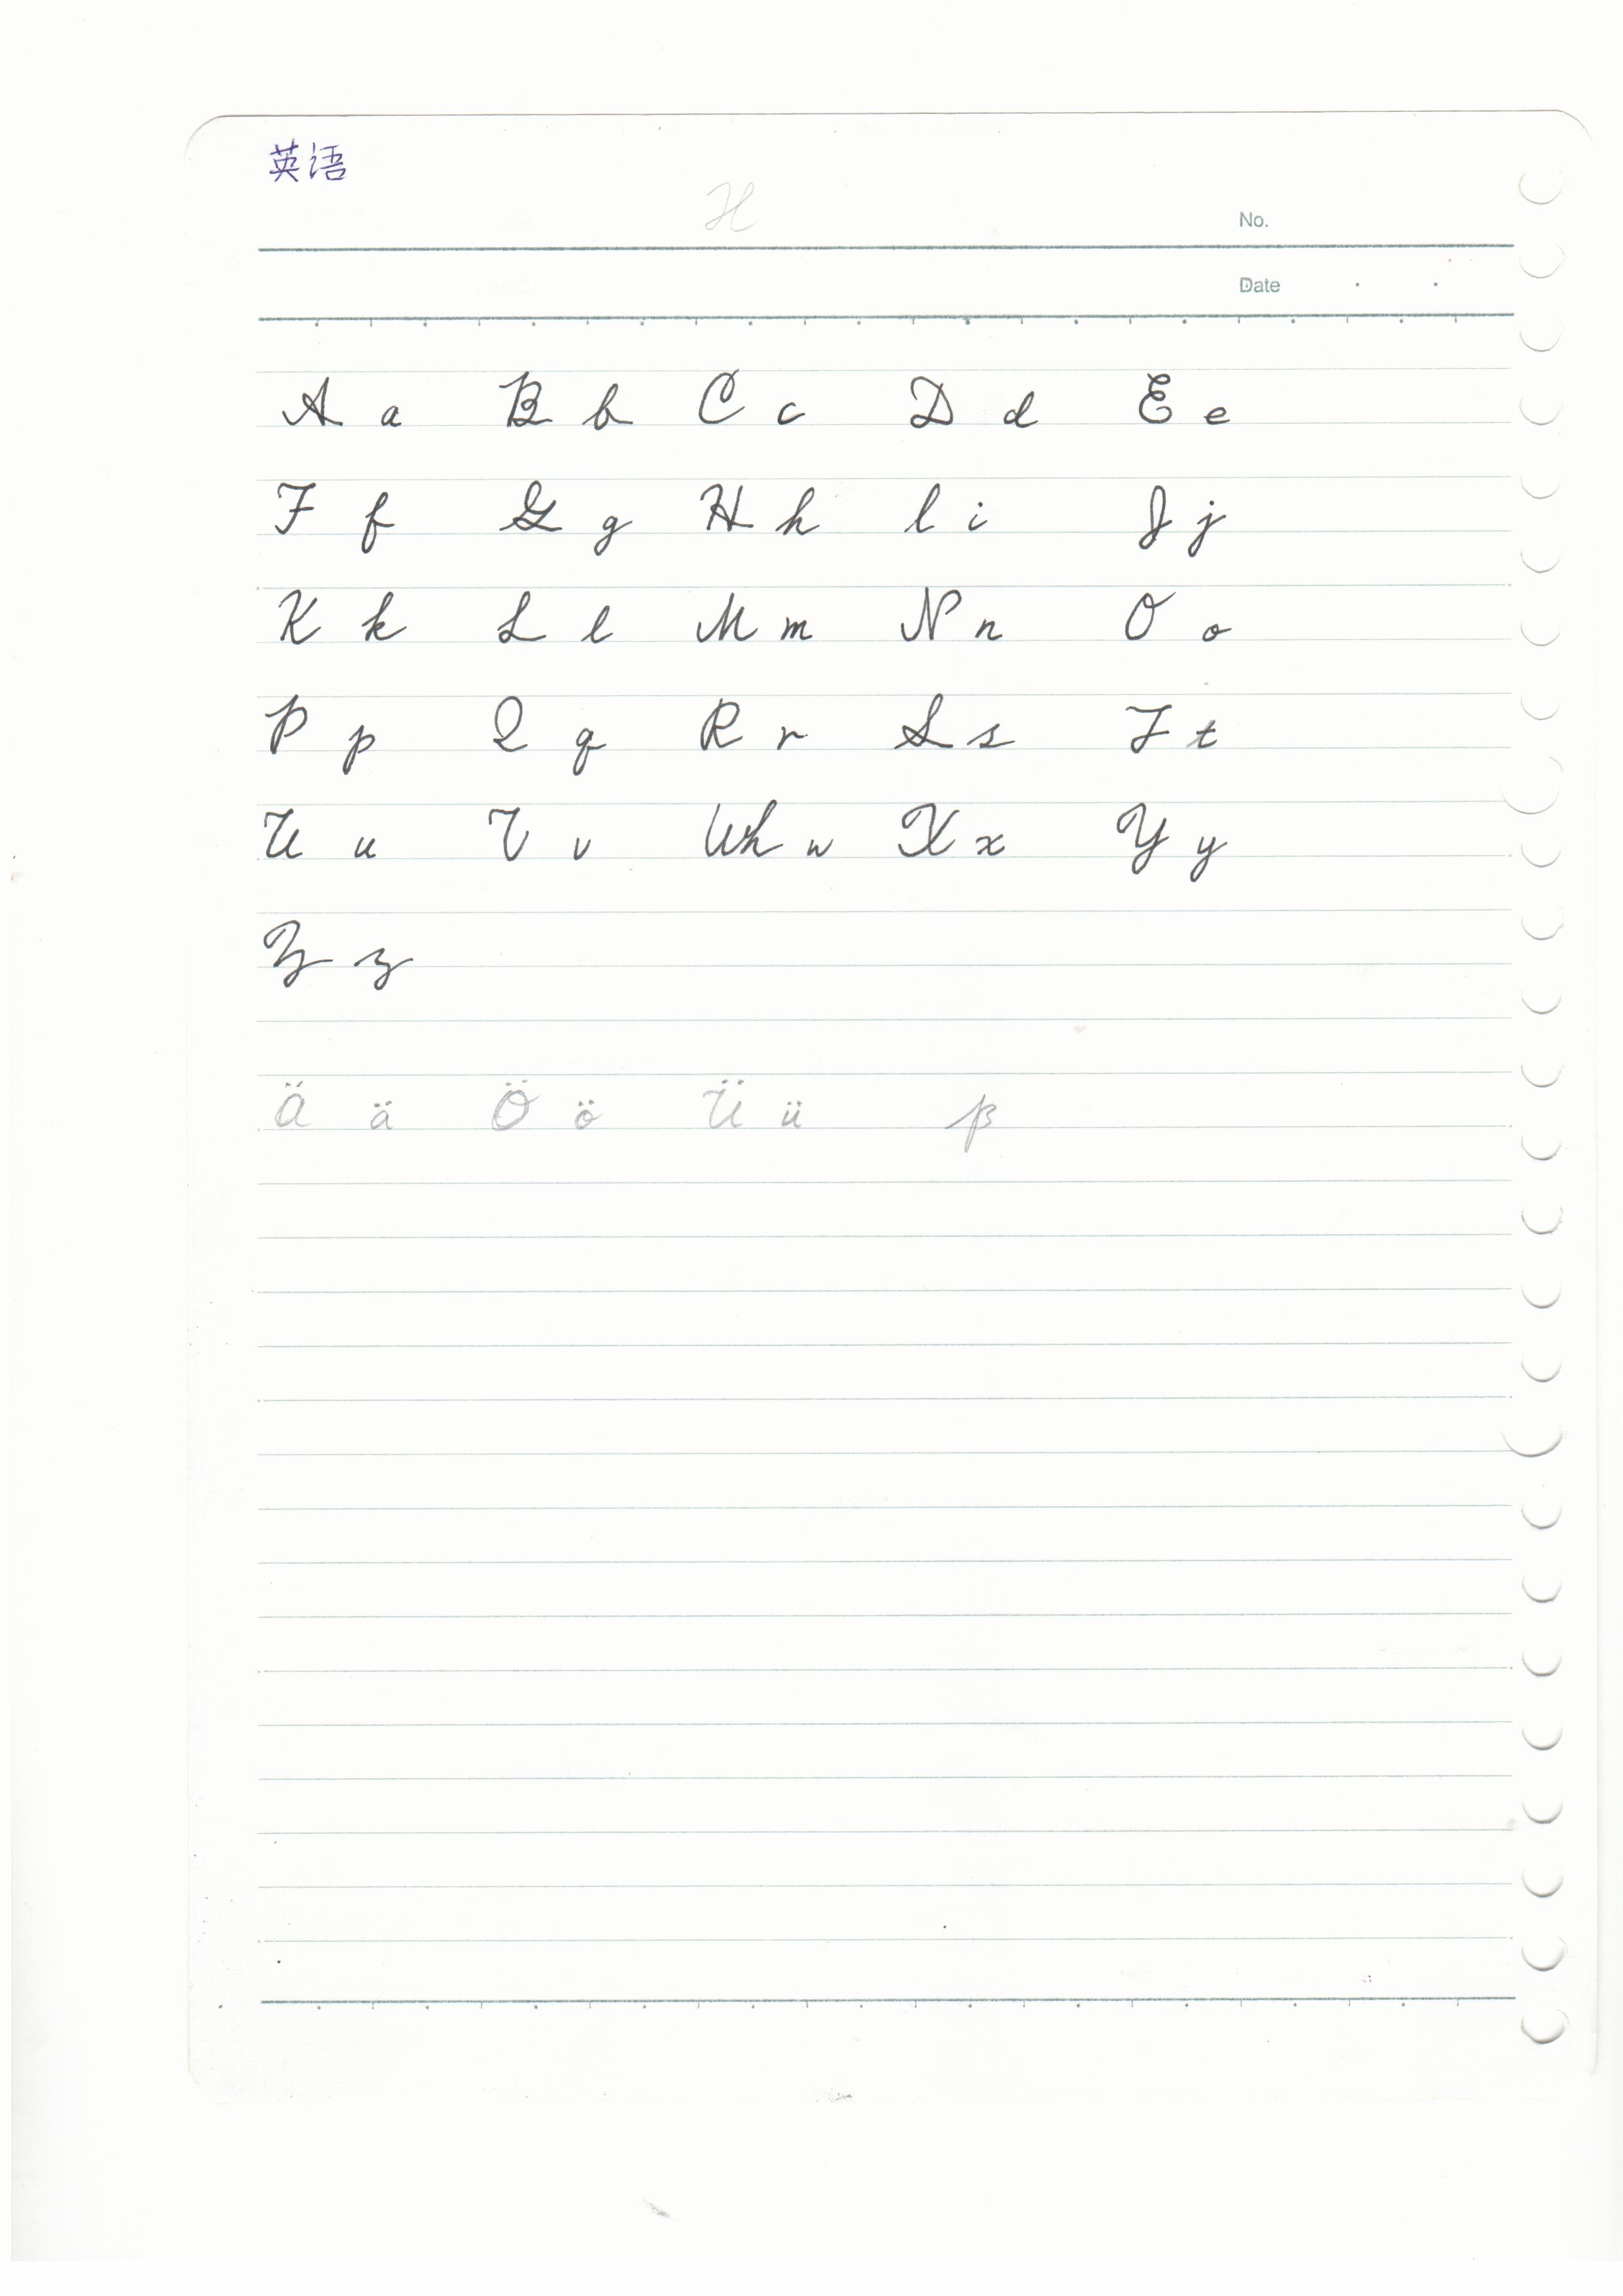 英语
H
No.
Date
A a B b C c D d E e
F f G g H h I i J j
K k L l M m N n O o
P p Q q R r S s T t
U u V v Wh w X x Y y
Z z
Ä ä Ö ö Ü ü ß